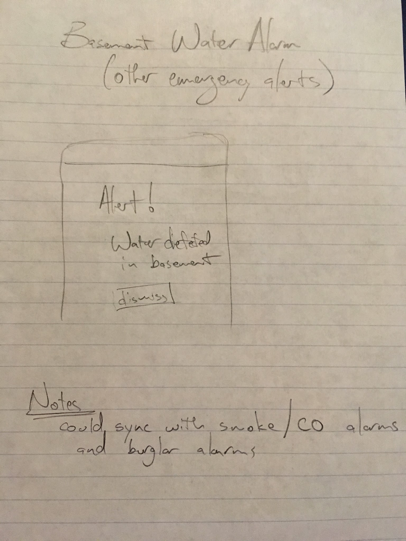 Basement Water Alarm
(other emergency alerts)
Alert!
Water detected
in basement
dismiss
Notes
could sync with smoke/CO alarms
and burglar alarms